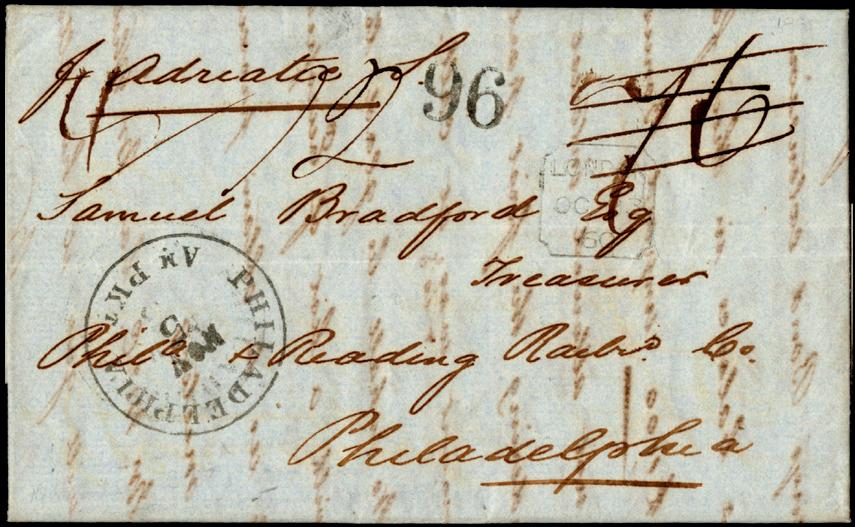 pr Adriatic S.
96
72
LONDON
OC
60
Samuel Bradford Esq
Treasurer
PHILADELPHIA AM PKT
NOV
5
Phila & Reading Railrd Co.
Philadelphia